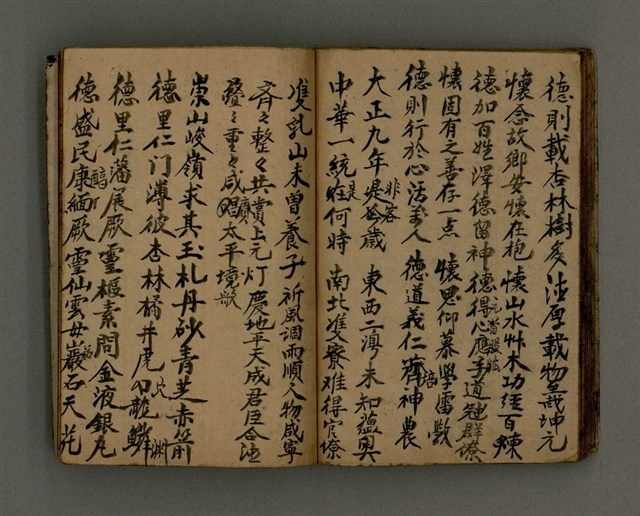 德則載杏林樹多 德厚載物哉坤元
懷念故鄉安懷在抱 懷山水艸木功經百煉
德加百姓澤德留神 德得心應手道冠群僚
懷固有之善存一点 懷思仰慕學雷數
德則行於心活萬人 德道義仁存濟神農
大正九年是参歲 東西二海未知蘊奧
中華一統在何時 南北雙寮难得官僚
雙乳山未曾養子 祈風调雨順人物咸寧
齐々整々共賞上元灯 慶地平天成君臣合德
叠々重々咸唱太平境
崇山峻嶺求其玉札丹砂青芝赤箭
德里仁门溥彼杏林橘井虎口龍鱗
德里仁藩展厥靈樞素問金液銀丸
德盛民康緬厥靈仙雲母巖石天花